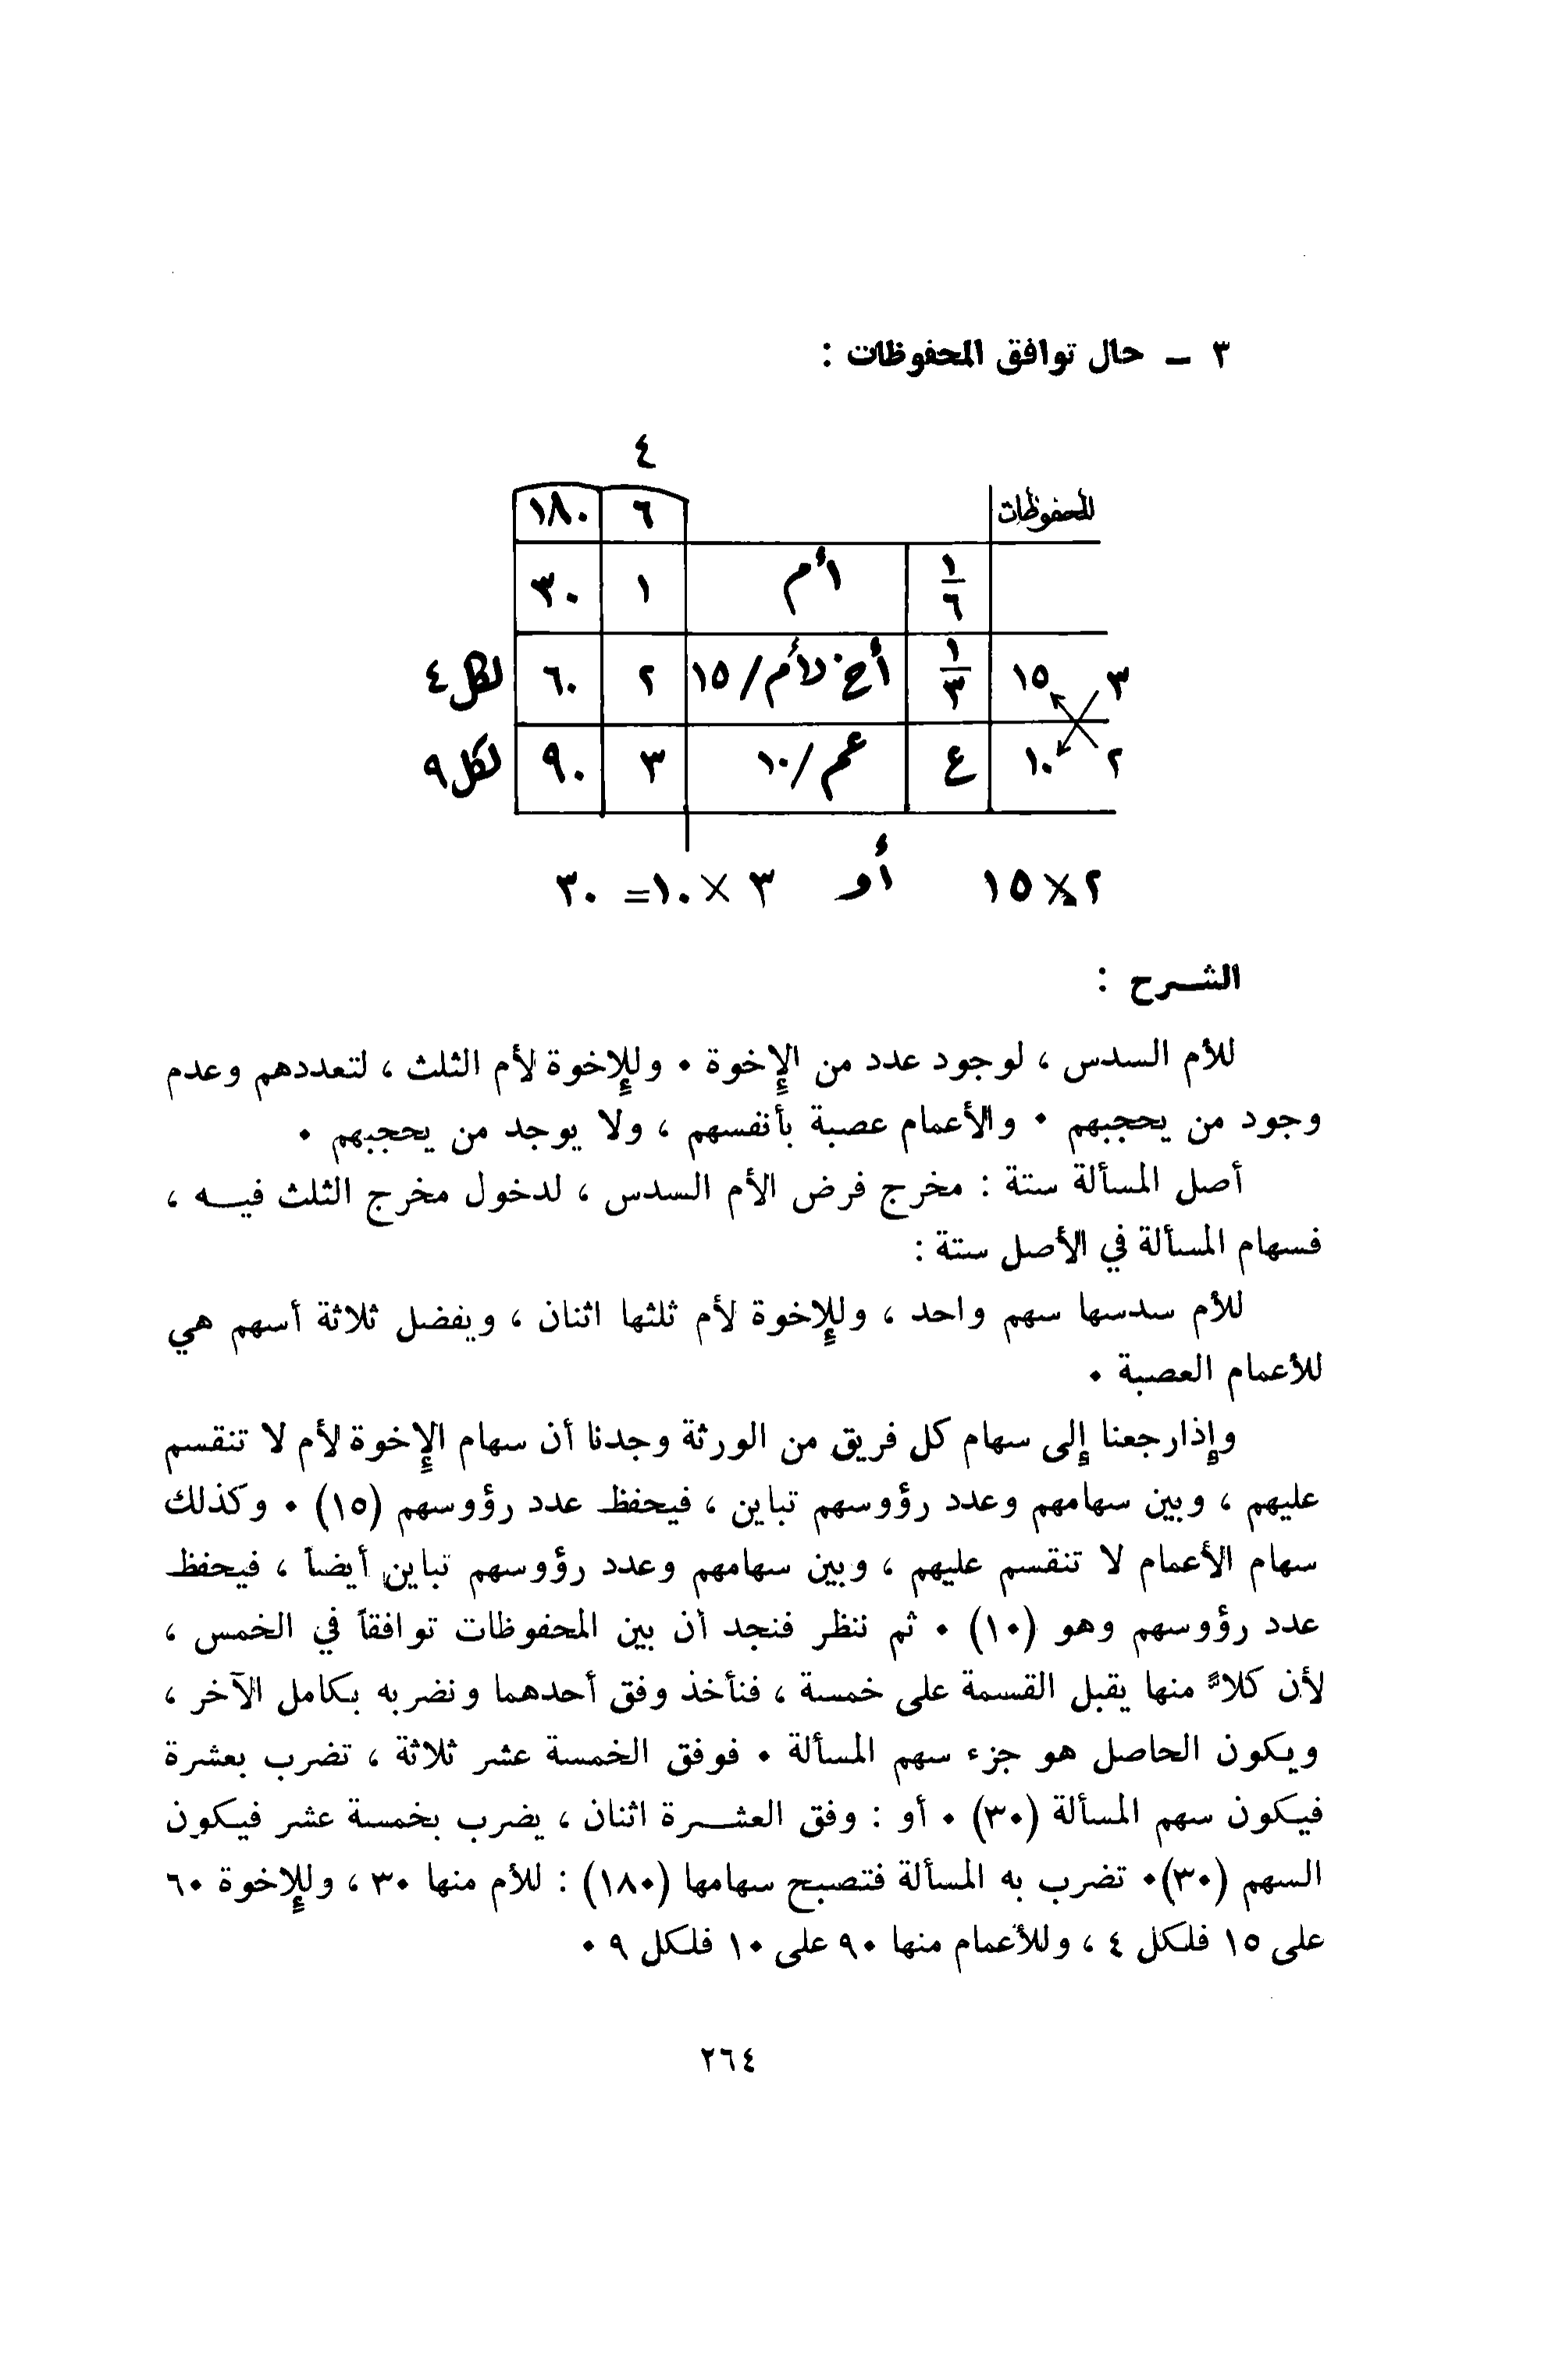 ٣ ــ حال توافق المحفوظات :
٤
المحفوظات ٦ ١٨٠
١/٦ أم ١ ٣٠
٣ ١٥ ١/٣ أخ لأم/١٥ ٢ ٦٠ لكل ٤
٢ ١٠ ع عم/١٠ ٣ ٩٠ لكل ٩
٢×١٥ أو ٣×١٠=٣٠
الشـرح :
للأم السدس ، لوجود عدد من الإخوة • وللإخوة لأم الثلث ، لتعددهم وعدم
وجود من يحجبهم • والأعمام عصبة بأنفسهم ، ولا يوجد من يحجبهم •
أصل المسألة ستة : مخرج فرض الأم السدس ، لدخول مخرج الثلث فيـه ،
فسهام المسألة في الأصل ستة :
للأم سدسها سهم واحد ، وللإخوة لأم ثلثها اثنان ، ويفضل ثلاثة أسهم هي
للأعمام العصبة •
وإذارجعنا إلى سهام كل فريق من الورثة وجدنا أن سهام الإخوة لأم لا تنقسم
عليهم ، وبين سهامهم وعدد رؤوسهم تباين ، فيحفظ عدد رؤوسهم (١٥) • وكذلك
سهام الأعمام لا تنقسم عليهم ، وبين سهامهم وعدد رؤوسهم تباين أيضاً ، فيحفظ
عدد رؤوسهم وهو (١٠) • ثم ننظر فنجد أن بين المحفوظات توافقاً في الخمس ،
لأن كلاً منها يقبل القسمة على خمسة ، فنأخذ وفق أحدهما ونضربه بكامل الآخر ،
ويكون الحاصل هو جزء سهم المسألة • فوفق الخمسة عشر ثلاثة ، تضرب بعشرة
فيكون سهم المسألة (٣٠) • أو : وفق العشـرة اثنان ، يضرب بخمسة عشر فيكون
السهم (٣٠)• تضرب به المسألة فتصبح سهامها (١٨٠) : للأم منها ٣٠ ، وللإخوة ٦٠
على ١٥ فلكل ٤ ، وللأعمام منها ٩٠ على ١٠ فلكل ٩ •
٢٦٤